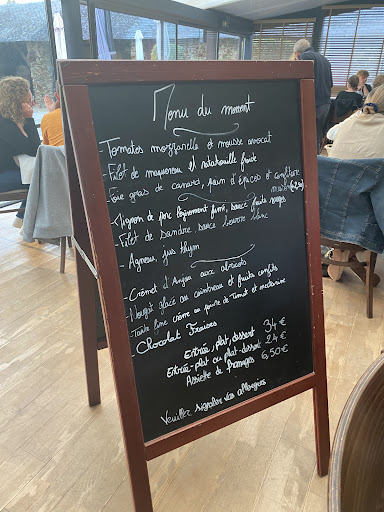 Menu du moment
Tomates mozzarella et mousse avocat
- Filet de maquereau et ratatouille froide
- Foie gras de canard, pain d'épices et confiture maison
- Mignon de porc légèrement fumé, sauce fruits rouges
- Filet de Sandre sauce beurre blanc
- Agneau, jus thym
- Crémet d'Anjou aux abricots
- Nougat glacé au cointreau et fruits confits
- Tarte fine crème au poivre de Timut et
- Chocolat Fraises
Entrée, plat, dessert 34 €
Entrée-plat ou plat-dessert 24 €
Assiette de fromages 6,50 €
Veuillez signaler vos allergies